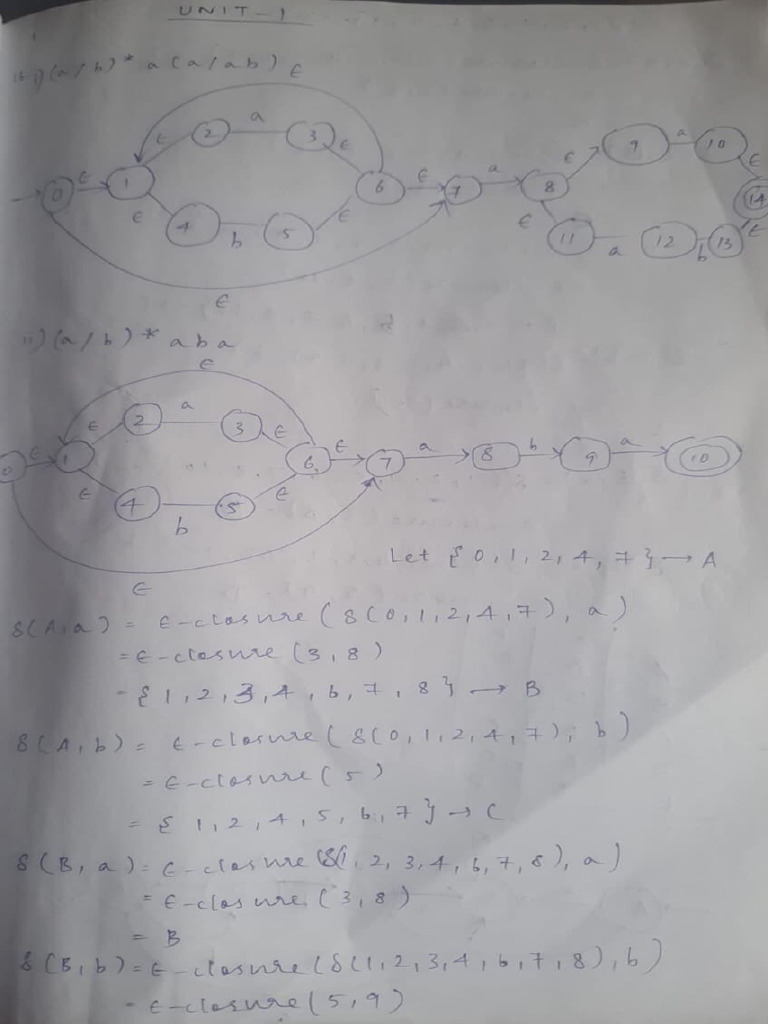 UNIT-1
i) (a/b)* a (a/ab)
ε
ε a ε
2 3
0 ε 1 6 ε 7 a 8 ε 9 a 10 ε
ε 4 b 5 ε ε 11 a 12 b 13 ε 14
ε
ii) (a/b)* aba
ε
ε 2 a 3 ε
0 ε 1 6 ε 7 a 8 b 9 a 10
ε 4 b 5 ε
ε
Let {0, 1, 2, 4, 7} → A
δ(A, a) = ε-closure (δ(0, 1, 2, 4, 7), a)
= ε-closure (3, 8)
= {1, 2, 3, 4, 6, 7, 8} → B
δ(A, b) = ε-closure (δ(0, 1, 2, 4, 7), b)
= ε-closure (5)
= {1, 2, 4, 5, 6, 7} → C
δ(B, a) = ε-closure (δ(1, 2, 3, 4, 6, 7, 8), a)
= ε-closure (3, 8)
= B
δ(B, b) = ε-closure (δ(1, 2, 3, 4, 6, 7, 8), b)
= ε-closure (5, 9)